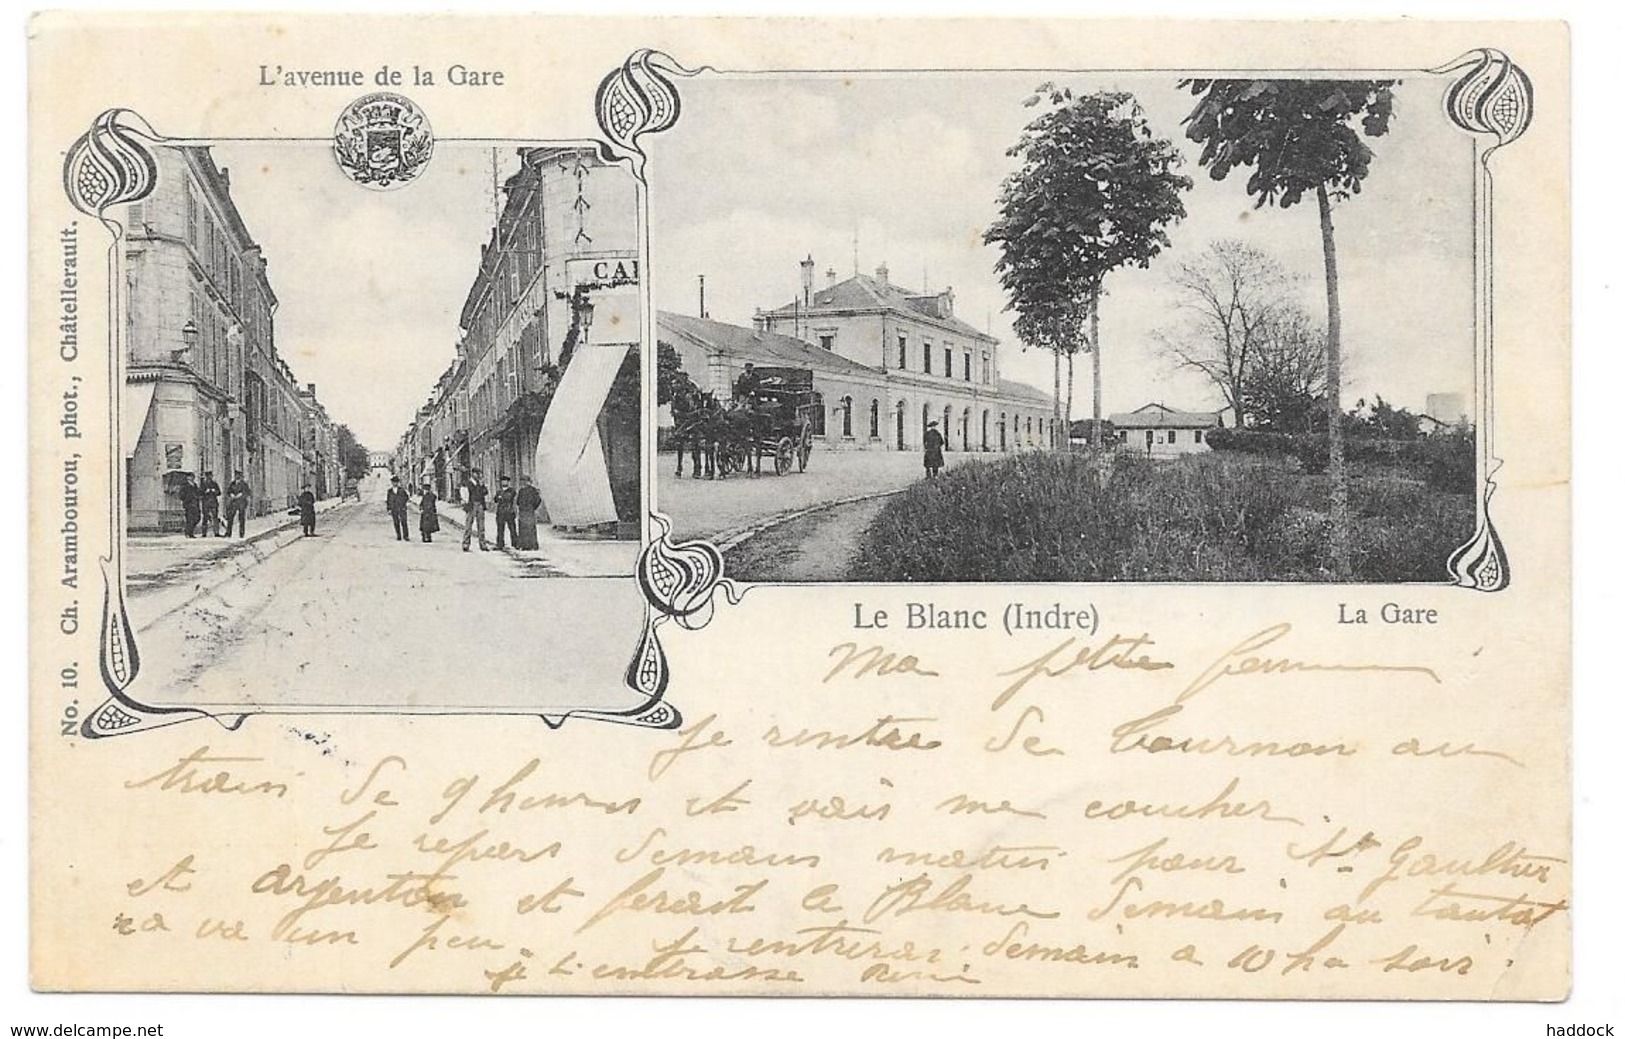 L'avenue de la Gare
CAF
No. 10. Ch. Arambourou, phot., Châtellerault.
Le Blanc (Indre)
La Gare
Ma petite femme
Je rentre de Tournon au
train de 9 heures et vais me coucher.
Je repars demain matin pour St Gaultier
et Argenton et ferait le Blanc demain au tantot
ça va un peu. Je rentrerai demain a 10 h soir.
je t'embrasse René
www.delcampe.net
haddock